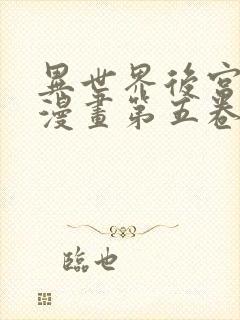 異世界後宮
漫畫第五卷
臨也